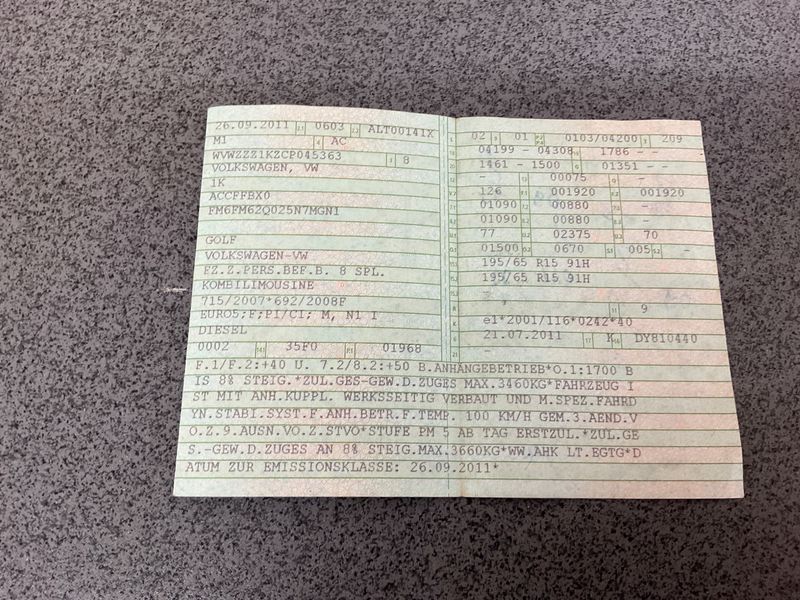 26.09.2011 0603 ALT00141X
M1 AC
WVWZZZ1KZCP045363 8
VOLKSWAGEN, VW
1K
ACCFFBX0
FM6FM62Q025N7MGN1
GOLF
VOLKSWAGEN-VW
FZ.Z.PERS.BEF.B. 8 SPL.
KOMBILIMOUSINE
715/2007*692/2008F
EURO5;F;PI/CI; M, N1 I
DIESEL
0002 35F0 01968
02 01 0103/04200 209
04199 - 04308 1786 - -
1461 - 1500 01351 - -
- 00075 -
126 001920 001920
01090 00880 -
01090 00880 -
77 02375 70
01500 0670 005 -
195/65 R15 91H
195/65 R15 91H
- ,
- 9
e1*2001/116*0242*40
21.07.2011 K DY810440
-
F.1/F.2:+40 U. 7.2/8.2:+50 B.ANHÄNGEBETRIEB*O.1:1700 B
IS 8% STEIG.*ZUL.GES-GEW.D.ZUGES MAX.3460KG*FAHRZEUG I
ST MIT ANH.KUPPL. WERKSSEITIG VERBAUT UND M.SPEZ.FAHRD
YN.STABI.SYST.F.ANH.BETR.F.TEMP. 100 KM/H GEM.3.AEND.V
O.Z.9.AUSN.VO.Z.STVO*STUFE PM 5 AB TAG ERSTZUL.*ZUL.GE
S.-GEW.D.ZUGES AN 8% STEIG.MAX.3660KG*WW.AHK LT.EGTG*D
ATUM ZUR EMISSIONSKLASSE: 26.09.2011*